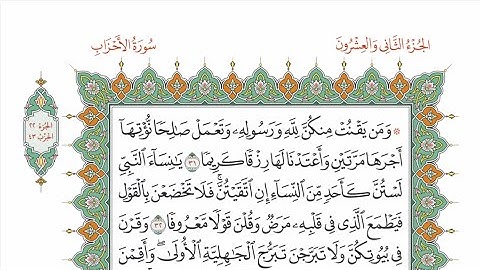 الجُزْءُ الثَّانِي وَالعِشْرُونَ
سُورَةُ الأَحْزَابِ
الجُزْءُ ٢٢
الحِزْبُ ٤٣
۞ وَمَن يَقْنُتْ مِنكُنَّ لِلَّهِ وَرَسُولِهِۦ وَتَعْمَلْ صَٰلِحًا نُّؤْتِهَآ
أَجْرَهَا مَرَّتَيْنِ وَأَعْتَدْنَا لَهَا رِزْقًا كَرِيمًا ٣١ يَٰنِسَآءَ ٱلنَّبِيِّ
لَسْتُنَّ كَأَحَدٍ مِّنَ ٱلنِّسَآءِ إِنِ ٱتَّقَيْتُنَّۚ فَلَا تَخْضَعْنَ بِٱلْقَوْلِ
فَيَطْمَعَ ٱلَّذِي فِي قَلْبِهِۦ مَرَضٌ وَقُلْنَ قَوْلًا مَّعْرُوفًا ٣٢ وَقَرْنَ
فِي بُيُوتِكُنَّ وَلَا تَبَرَّجْنَ تَبَرُّجَ ٱلْجَٰهِلِيَّةِ ٱلْأُولَىٰۖ وَأَقِمْنَ